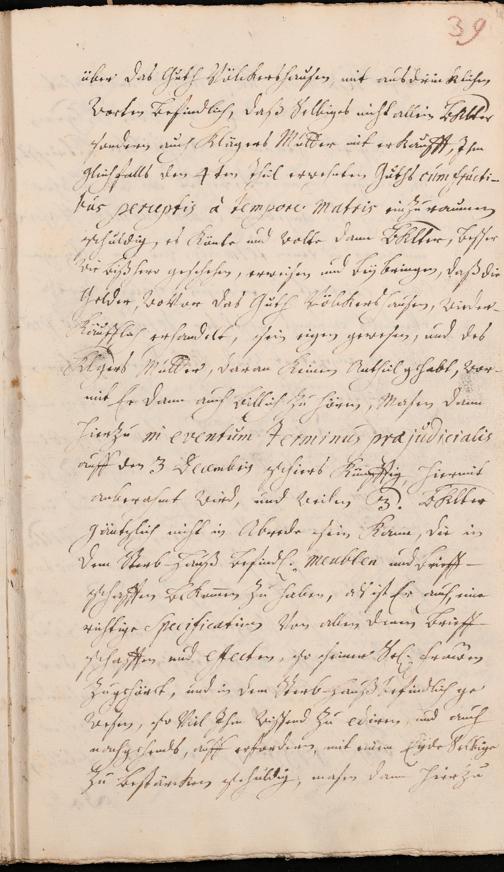 39
über das Guth Völckershausen, mit ausdrücklichen
Worten befindlich, daß Selbiges nicht allein Bklter
sondern auch Klägers Mutter mit erkaufft, Ihm
gleichfalls den 4ten Theil erwehnten Guths cum fructi-
bus perceptis à tempore Matris einzuraumen
schuldig, es könte und wolte dann Bklter, besser
wie bißhero geschehen, erweisen und beybringen, daß die
Gelder, wovor das Guth Völckershausen, wieder-
käufflich erhandelt, sein eigen gewesen, und des
Klägers Mutter, daran keinen Antheil gehabt, wor-
mit Er dann auch billich zu hören, Masen dann
hierzu in eventum Terminus præjudicialis
auff den 3 Decembris schiers künfftig, hiermit
anberaumt wird, und weilen 3. Bklter
gäntzlich nicht in Abrede sein kann, die in
dem Sterb-Hauß befindl. meublen und Brieff-
schafften bekommen zu haben, als ist Er auch, eine
richtige Specification von allen denen Brieff-
schafften und effecten, so seiner Seel. Frauen
zugehört, und in dem Sterb-Hauß befindlich ge-
wesen, so viel Ihm wissend zu ediren, und auch
nachgehends, auff erfordern, mit einem Eyde Selbige
zu bestärcken schuldig, masen dann hierzu